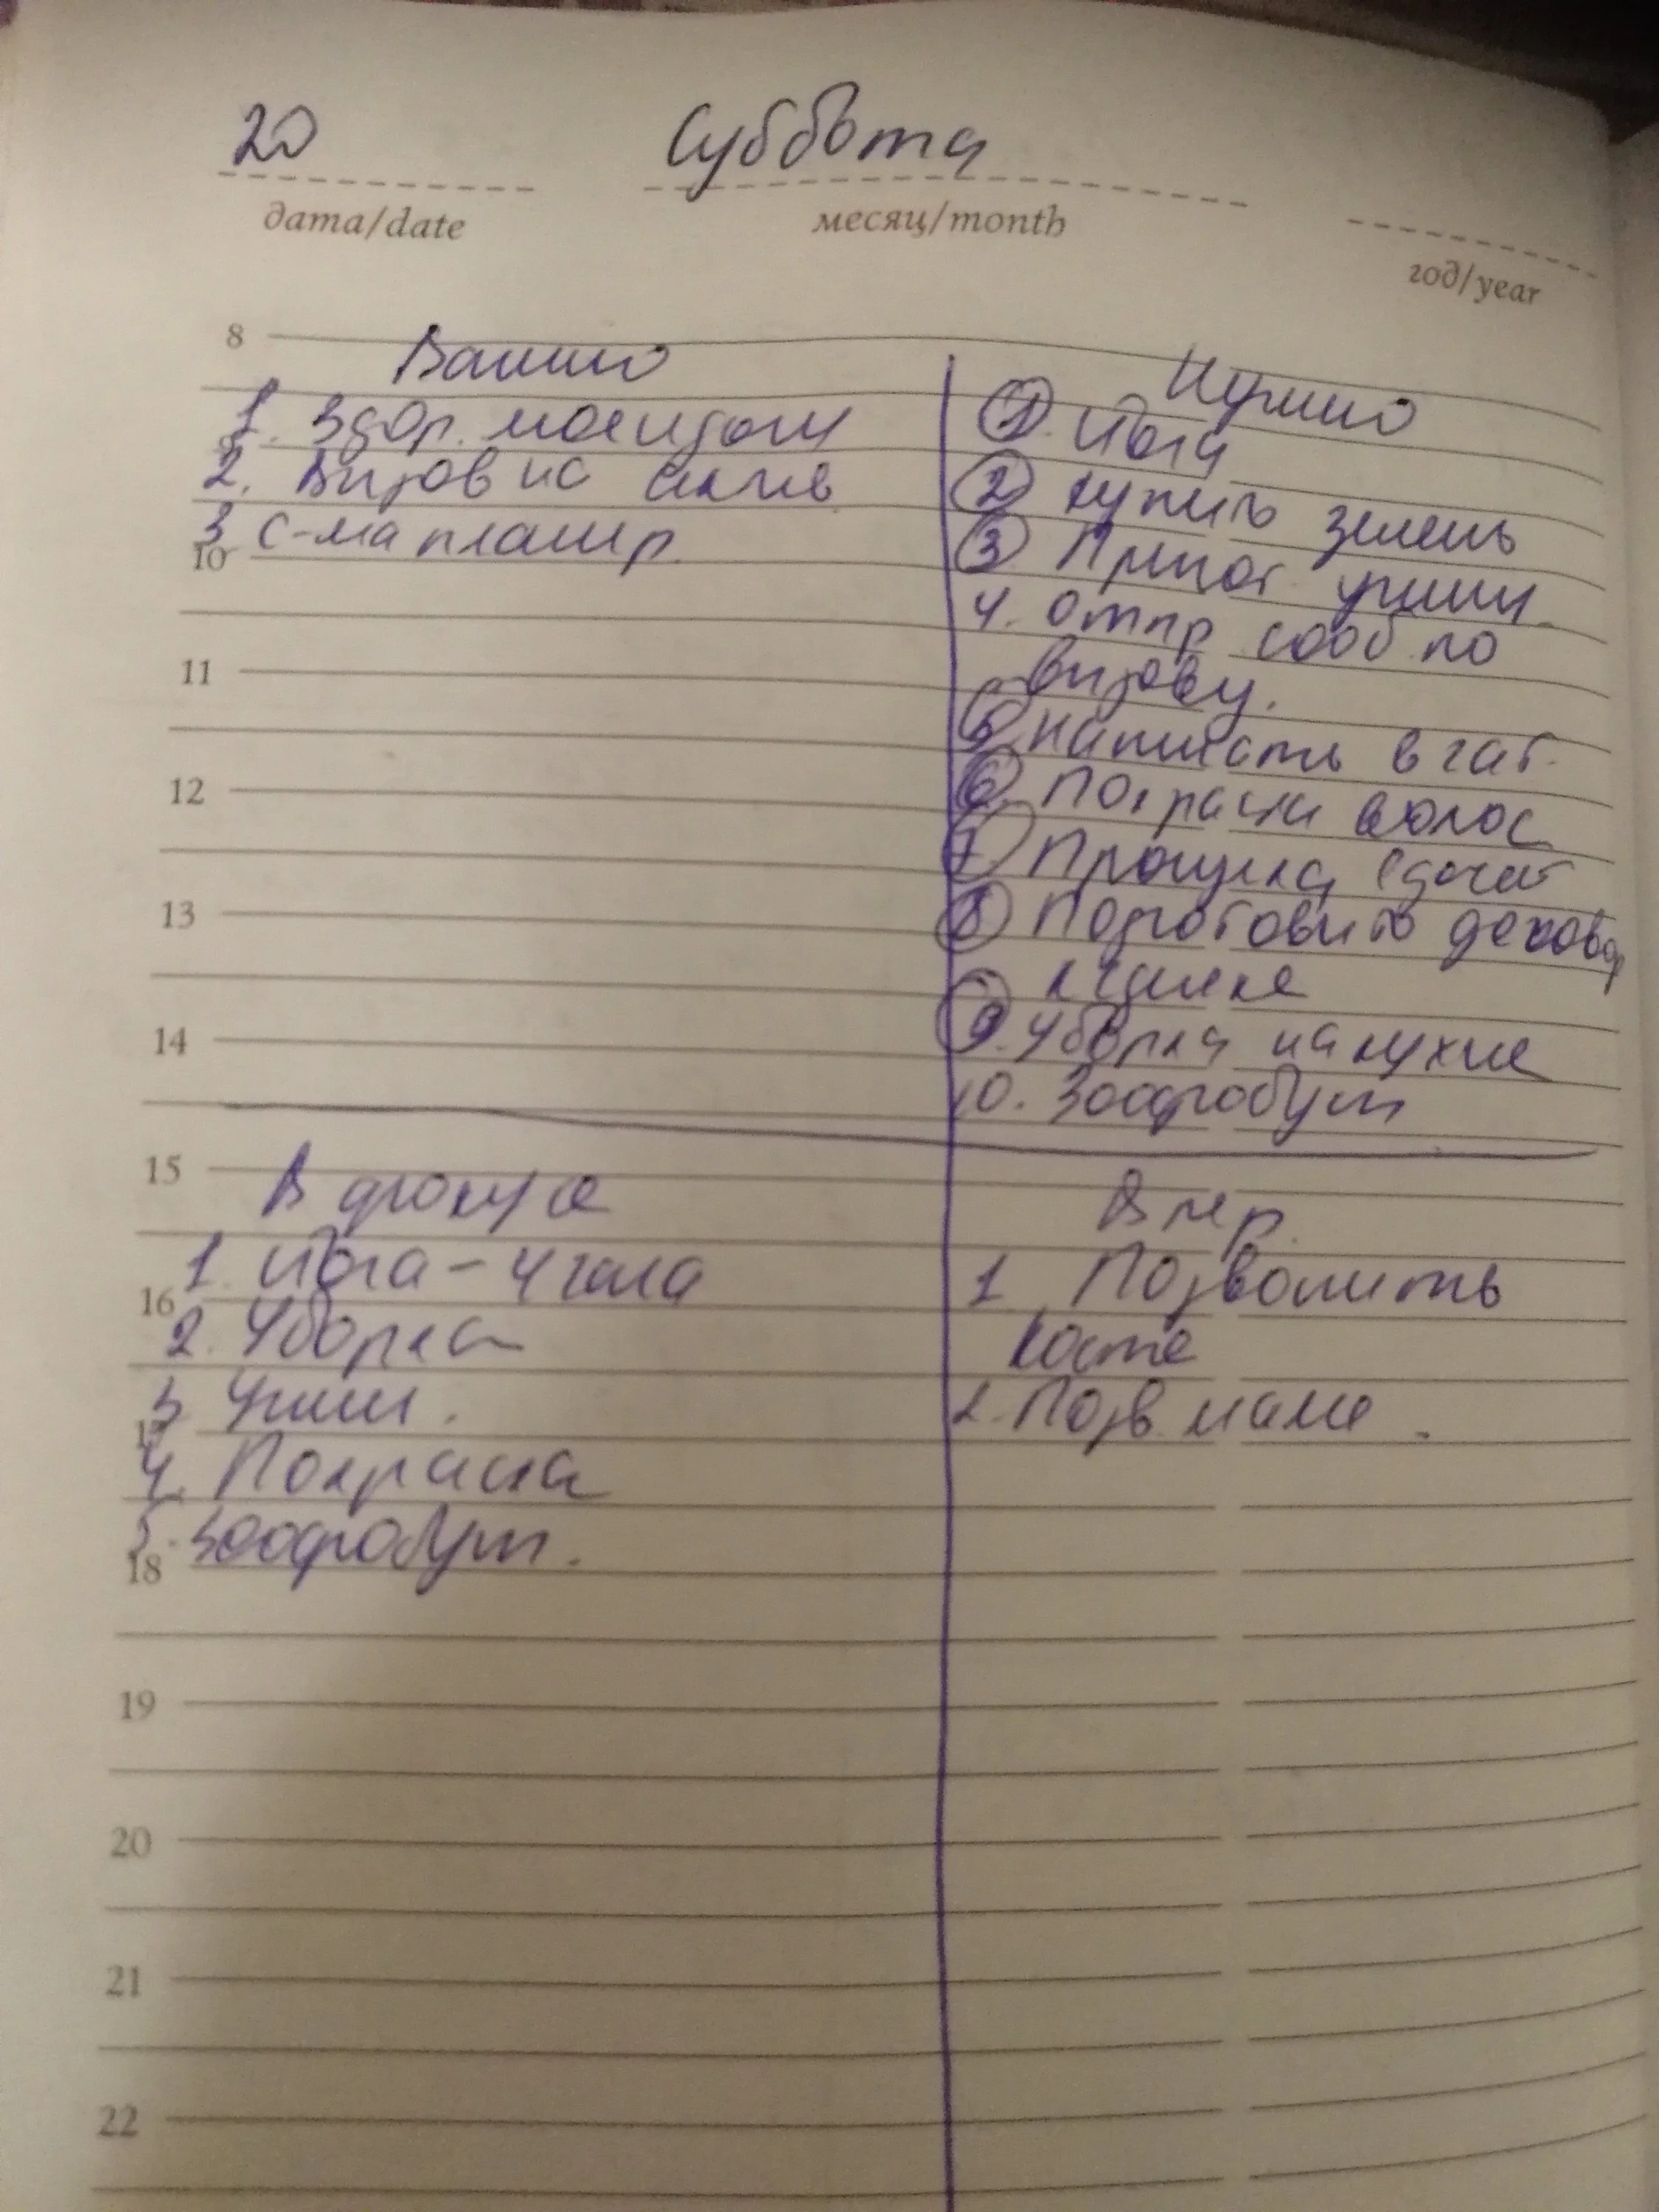 20 Суббота
дата/date месяц/month год/year
8
Важно
1. Здор.
2. Вызов на
3 С-ма планир.
9
10
11
12
13
14
Нужно
1. Йога
2 купить зелень
3. Пригот ужин
4. Отпр сооб. по
вызову.
5 Написать в чат.
6. Покраска волос
7. Прогулка
8 Подготовить
9. Уборка на кухне
10. Зоофобут
15
В фокусе
1. Йога - 4 часа
16
2. Уборка
3 Ужин.
17
4. Покраска
5. Зоофобут.
18
В пер.
1 Позвонить
Косте
2. Позв маме.
19
20
21
22